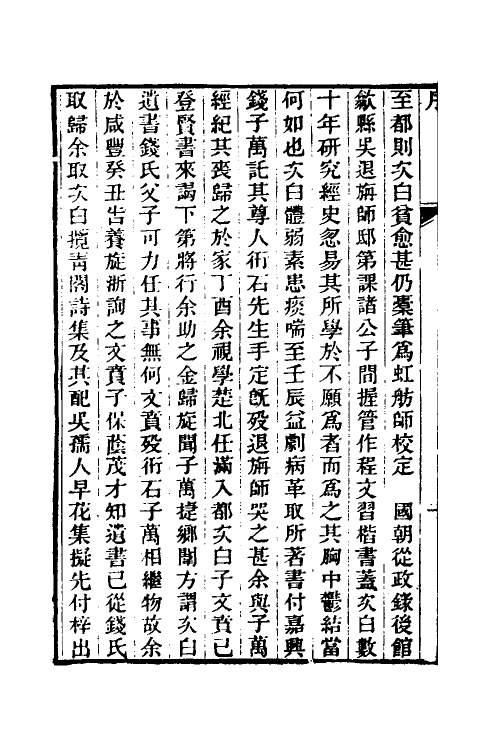 序
一
至都則次白貧愈甚仍橐筆爲虹舫師校定　國朝從政錄後館
歙縣吳退旃師邸第課諸公子間握管作程文習楷書蓋次白數
十年研究經史忽易其所學於不願爲者而爲之其胸中鬱結當
何如也次白體弱素患痰喘至壬辰益劇病革取所著書付嘉興
錢子萬託其尊人衎石先生手定旣歿退旃師哭之甚余與子萬
經紀其喪歸之於家丁酉余視學楚北任滿入都次白子文賁已
登賢書來謁下第將行余助之金歸旋聞子萬捷鄉闈方謂次白
遺書錢氏父子可力任其事無何文賁歿衎石子萬相繼物故余
於咸豐癸丑告養旋浙詢之文賁子保蔭茂才知遺書已從錢氏
取歸余取次白攬靑閣詩集及其配吳孺人早花集擬先付梓出